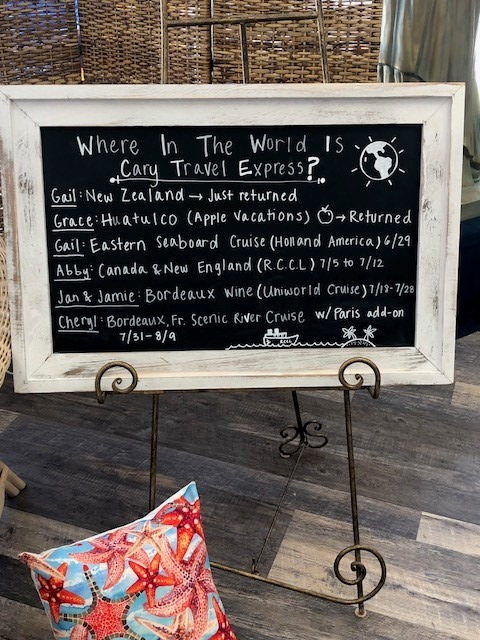 Where In The World Is
Cary Travel Express?
Gail: New Zealand → Just returned
Grace: Huatulco (Apple Vacations) → Returned
Gail: Eastern Seaboard Cruise (Holland America) 6/29
Abby: Canada & New England (R.C.C.L) 7/5 to 7/12
Jan & Jamie: Bordeaux Wine (Uniworld Cruise) 7/18-7/28
Cheryl: Bordeaux, Fr. Scenic River Cruise w/ Paris add-on
7/31-8/9